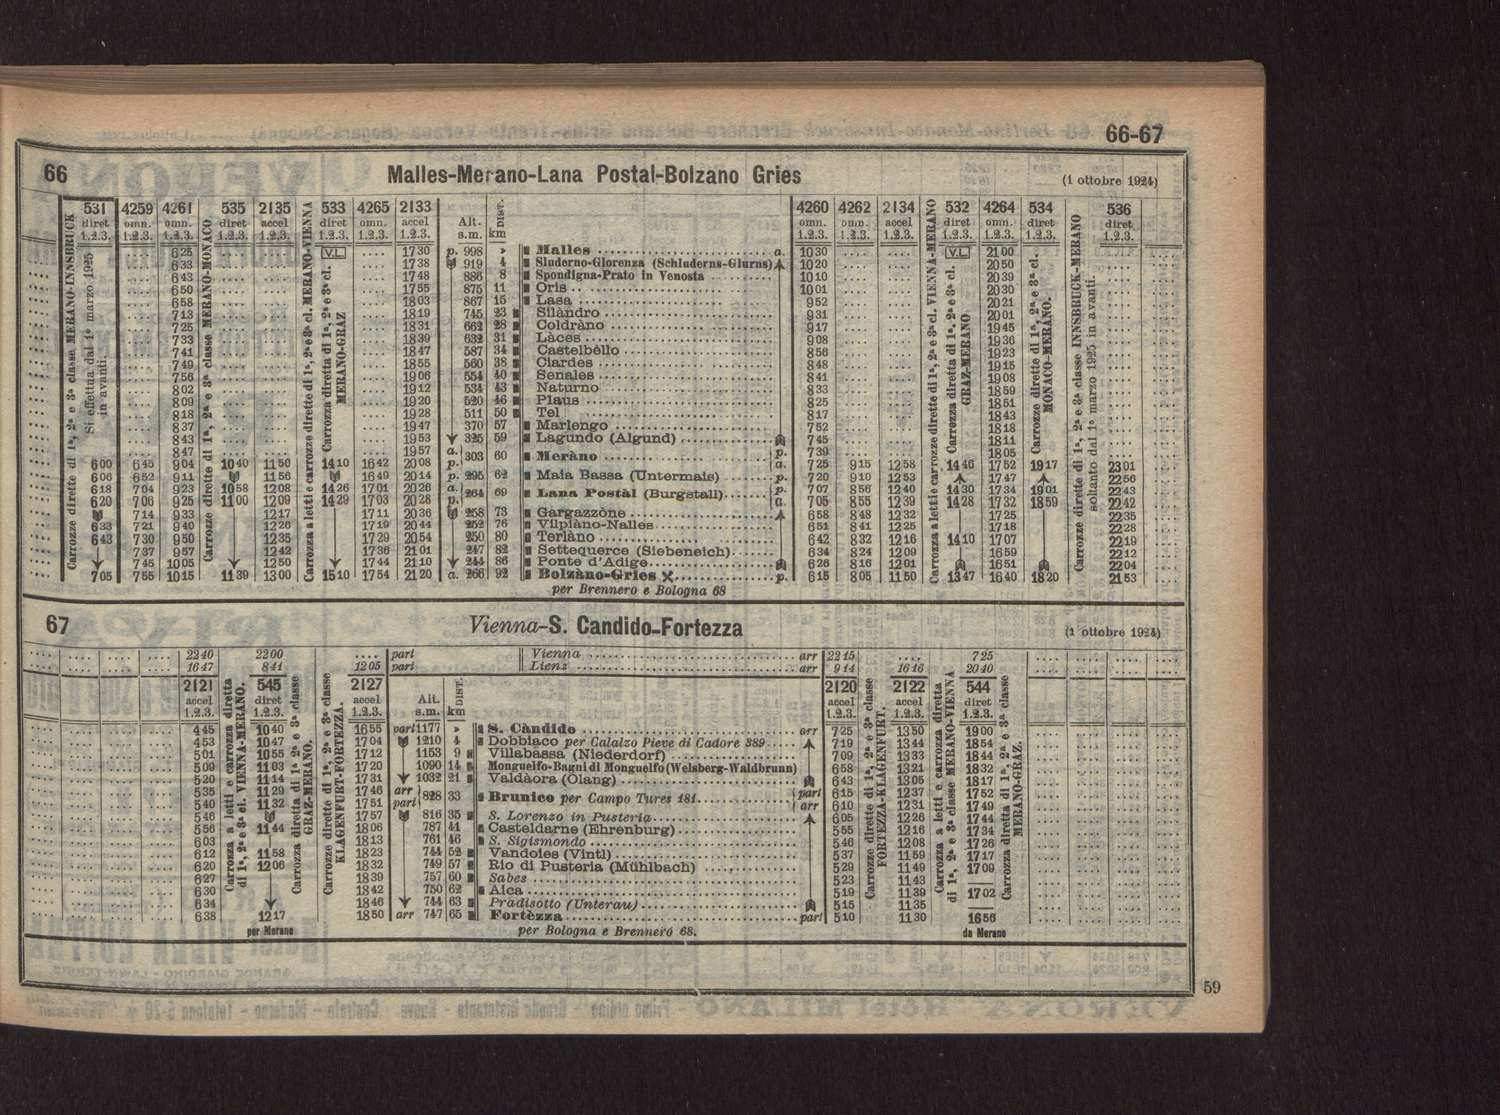 66-67
66 Malles-Merano-Lana Postal-Bolzano Gries (1 ottobre 1924)
531 4259 4261 535 2135 533 4265 2133 Alt. DIST. 4260 4262 2134 532 4264 534 536
diret omn. omn. diret accel diret omn. accel s.m. km omn. omn. accel diret omn. diret diret
1.2.3. 1.2.3. 1.2.3. 1.2.3. 1.2.3. 1.2.3. 1.2.3. 1.2.3. 1.2.3. 1.2.3. 1.2.3. 1.2.3. 1.2.3. 1.2.3. 1.2.3.
Carrozze dirette di 1ª, 2ª e 3ª classe MERANO-INNSBRUCK
Si effettua dal 1º marzo 1925 in avanti.
Carrozze dirette di 1ª, 2ª e 3ª classe MERANO-MONACO
Carrozza a letti e carrozze dirette di 1ª, 2ª e 3ª cl. MERANO-VIENNA
Carrozza diretta di 1ª, 2ª e 3ª cl. MERANO-GRAZ
Carrozza a letti e carrozze dirette di 1ª, 2ª e 3ª cl. VIENNA-MERANO
Carrozza diretta di 1ª, 2ª e 3ª cl. GRAZ-MERANO
Carrozze dirette di 1ª, 2ª e 3ª cl. MONACO-MERANO.
Carrozze dirette di 1ª, 2ª e 3ª classe INNSBRUCK-MERANO
soltanto dal 1º marzo 1925 in avanti.
625 V.L. 1730 p. 998 » Malles a. 1030 V.L. 2100
633 1738 919 4 Sluderno-Glorenza (Schluderns-Glurns) 1020 2050
643 1748 886 8 Spondigna-Prato in Venosta 1010 2039
650 1755 875 11 Oris 1001 2030
658 1803 867 15 Lasa 952 2021
713 1819 745 23 Silàndro 931 2001
725 1831 662 28 Coldràno 917 1945
733 1839 632 31 Làces 908 1936
741 1847 587 34 Castelbèllo 856 1923
749 1855 560 38 Ciardes 848 1915
756 1906 554 40 Senales 841 1908
802 1912 534 43 Naturno 833 1859
809 1920 520 46 Plaus 825 1851
818 1928 511 50 Tel 817 1843
837 1947 370 57 Marlengo 752 1818
843 1953 325 59 Lagundo (Algund) 745 1811
847 1957 a. 303 60 Meràno p. 739 1805
600 645 904 1040 1150 1410 1642 2008 p. a. 725 915 1258 1446 1752 1917 2301
606 652 911 1156 1649 2014 p. 295 62 Maia Bassa (Untermais) p. 720 910 1253 1747 2256
618 704 923 1058 1208 1426 1701 2026 a. 264 69 Lana Postàl (Burgstall) p. 707 856 1240 1430 1734 1901 2243
620 706 925 1100 1209 1429 1703 2028 p. a. 705 855 1239 1428 1732 1859 2242
714 933 1217 1711 2036 258 73 Gargazzòne 658 848 1232 1725 2235
633 721 940 1226 1719 2044 252 76 Vilpiàno-Nalles 651 841 1225 1718 2228
643 730 950 1235 1729 2054 250 80 Terlàno 642 832 1216 1410 1707 2219
737 957 1242 1736 2101 247 82 Settequerce (Siebeneich) 634 824 1209 1659 2212
745 1005 1250 1744 2110 244 86 Ponte d'Adige 626 816 1201 1651 2204
705 755 1015 1139 1300 1510 1754 2120 a. 266 92 Bolzàno-Gries p. 615 805 1150 1347 1640 1820 2153
per Brennero e Bologna 68
67 Vienna-S. Candido-Fortezza (1 ottobre 1924)
2240 2200 .... part Vienna arr 2215 .... 725
1647 841 1205 part Lienz arr 914 1616 2040
2121 545 2127 Alt. DIST. 2120 2122 544
accel diret accel s.m. km accel accel diret
1.2.3. 1.2.3. 1.2.3. 1.2.3. 1.2.3. 1.2.3.
Carrozza a letti e carrozza diretta di 1ª, 2ª e 3ª cl. VIENNA-MERANO.
Carrozza diretta di 1ª 2ª e 3ª classe GRAZ-MERANO.
Carrozze dirette di 1ª, 2ª e 3ª classe KLAGENFURT-FORTEZZA.
Carrozze dirette di 1ª, 2ª e 3ª classe FORTEZZA-KLAGENFURT.
Carrozza a letti e carrozza diretta di 1ª, 2ª e 3ª classe MERANO-VIENNA
Carrozza diretta di 1ª, 2ª e 3ª classe MERANO-GRAZ.
445 1040 1655 part 1177 » S. Càndido arr 725 1350 1900
453 1047 1704 1210 4 Dobbiaco per Calalzo Pieve di Cadore 389 719 1344 1854
501 1055 1712 1153 9 Villabassa (Niederdorf) 709 1333 1844
509 1103 1720 1090 14 Monguelfo-Bagni di Monguelfo (Welsberg-Waldbrunn) 658 1321 1832
520 1114 1731 1032 21 Valdàora (Olang) 643 1305 1817
535 1129 1746 arr 828 33 Brunico per Campo Tures 181 part 615 1237 1752
540 1132 1751 part arr 610 1231 1749
546 1757 816 35 S. Lorenzo in Pusteria 605 1226 1744
556 1144 1806 787 41 Casteldarne (Ehrenburg) 555 1216 1734
603 1813 761 46 S. Sigismondo 546 1208 1726
612 1158 1823 744 52 Vandoies (Vintl) 537 1159 1717
620 1206 1832 749 57 Rio di Pusteria (Mühlbach) 529 1149 1709
627 1839 757 60 Sabes 523 1143
630 1842 750 62 Aica 519 1139 1702
634 1846 744 63 Pradisotto (Unterau) 515 1135
638 1217 1850 arr 747 65 Fortèzza part 510 1130 1656
per Merano per Bologna e Brennero 68. da Merano
59